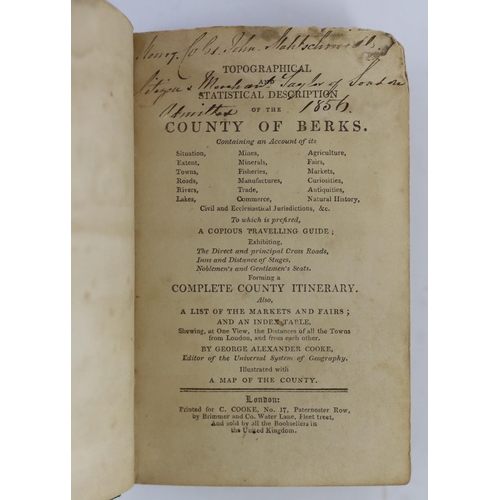 TOPOGRAPHICAL
AND
STATISTICAL DESCRIPTION
OF THE
Admitted 1856
COUNTY OF BERKS.
Containing an Account of its
Situation, Mines, Agriculture,
Extent, Minerals, Fairs,
Towns, Fisheries, Markets,
Roads, Manufactures, Curiosities,
Rivers, Trade, Antiquities,
Lakes, Commerce, Natural History,
Civil and Ecclesiastical Jurisdictions, &c.
To which is prefixed,
A COPIOUS TRAVELLING GUIDE;
Exhibiting,
The Direct and principal Cross Roads,
Inns and Distance of Stages,
Noblemen's and Gentlemen's Seats.
Forming a
COMPLETE COUNTY ITINERARY.
Also,
A LIST OF THE MARKETS AND FAIRS;
AND AN INDEX TABLE,
Shewing, at One View, the Distances of all the Towns
from London, and from each other.
BY GEORGE ALEXANDER COOKE,
Editor of the Universal System of Geography.
Illustrated with
A MAP OF THE COUNTY.
London:
Printed for C. COOKE, No. 17, Paternoster Row,
by Brimmer and Co. Water Lane, Fleet treet,
And sold by all the Booksellers in
the United Kingdom.